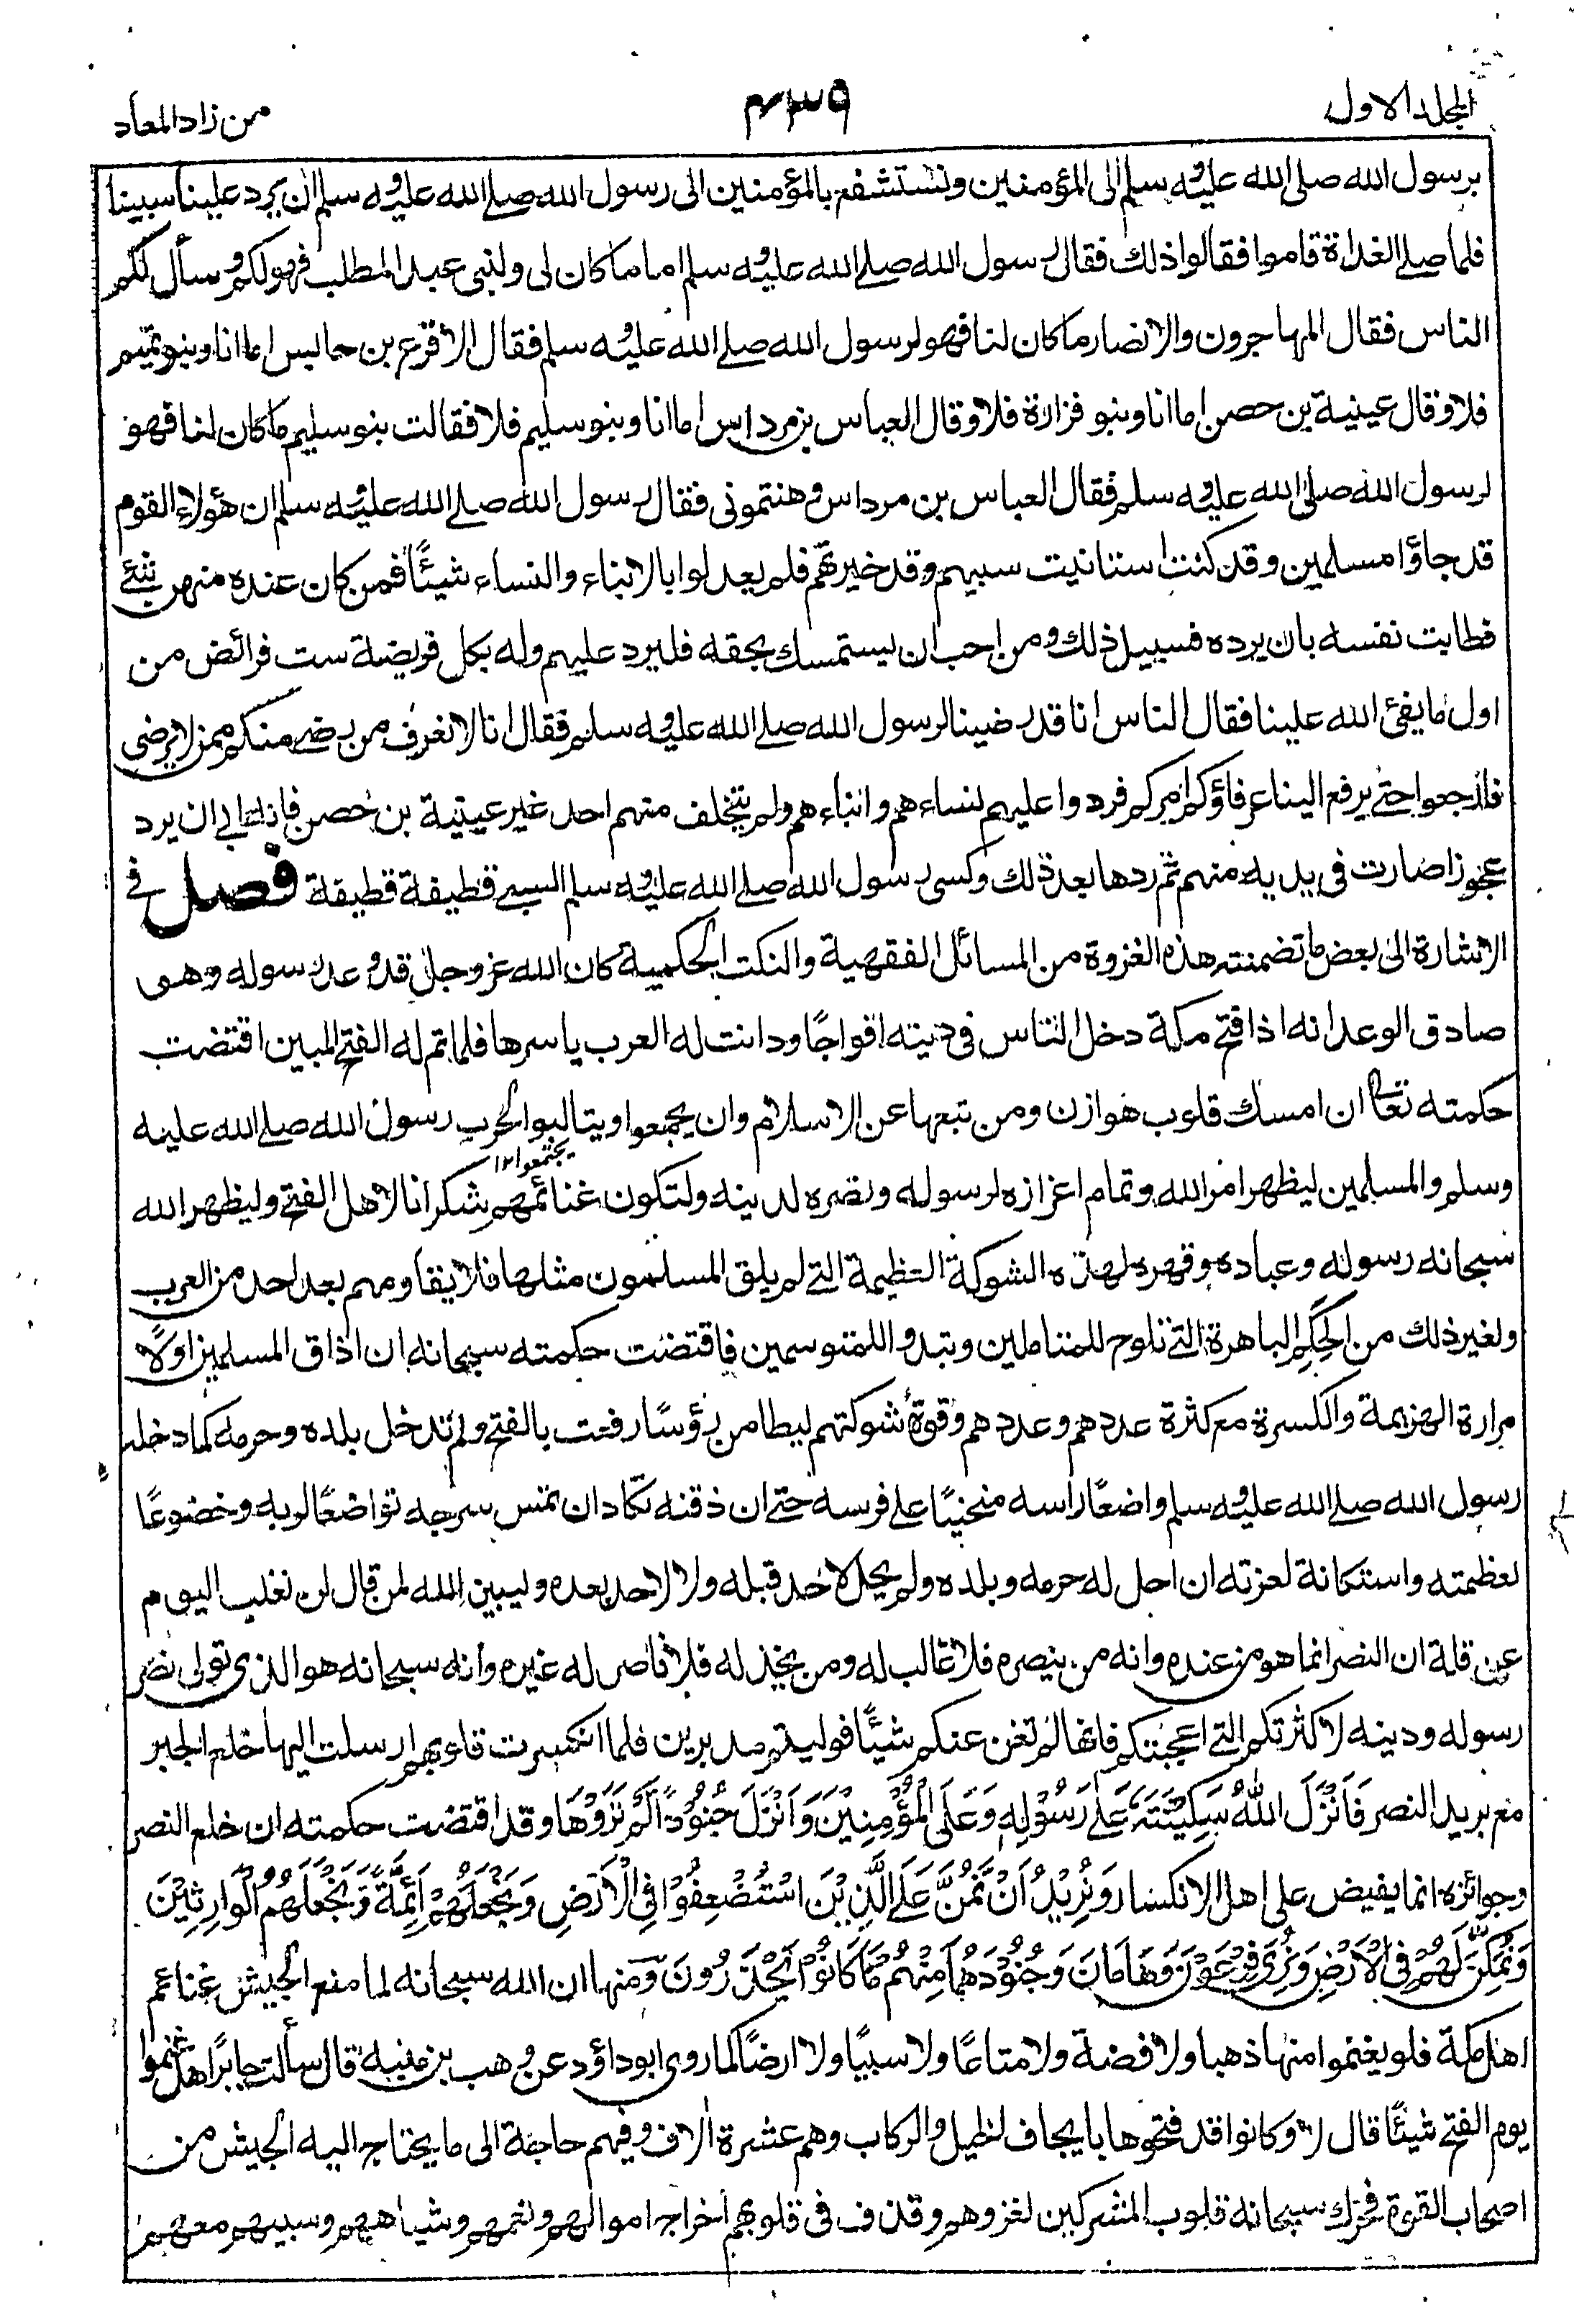 المجلد الاول
٤٣٩
من زاد المعاد
برسول الله صلى الله عليه وسلم الى المؤمنين ونستشفع بالمؤمنين الى رسول الله صلے الله عليه وسلم ان يرد علينا سبينا
فلما صلے الغداة قاموا فقالوا ذلك فقال رسول الله صلے الله عليه وسلم اما ما كان لى ولبنى عبد المطلب فهو لكم وسأل لكم
الناس فقال المهاجرون والانصار ما كان لنا فهو لرسول الله صلے الله عليه وسلم فقال الاقرع بن حابس اما انا وبنو تميم
فلا وقال عيينة بن حصن اما انا وبنو فزارة فلا وقال العباس بن مرداس اما انا وبنو سليم فلا فقالت بنو سليم ما كان لنا فهو
لرسول الله صلى الله عليه وسلم فقال العباس بن مرداس وهنتمونى فقال رسول الله صلے الله عليه وسلم ان هؤلاء القوم
قد جاؤا مسلمين وقد كنت استانيت سبيهم وقد خيرتهم فلم يعدلوا بالابناء والنساء شيئًا فمن كان عنده منهن شئ
فطابت نفسه بان يرده فسبيل ذلك ومن احب ان يستمسك بحقه فليرد عليهم وله بكل فريضة ست فرائض من
اول ما يفئ الله علينا فقال الناس انا قد رضينا لرسول الله صلے الله عليه وسلم فقال انا لا نعرف من رضے منكم ممن لا يرضى
فارجعوا حتے يرفع الينا عرفاؤكم امركم فردوا عليهم نساءهم وابناءهم ولم يتخلف منهم احد غير عيينة بن حصن فانه ابى ان يرد
عجوزا صارت فى يديه منهم ثم ردها بعد ذلك وكسى رسول الله صلے الله عليه وسلم السبے قطيفة قطيفة فصل فے
الاشارة الى بعض ما تضمنته هذه الغزوة من المسائل الفقهية والنكت الحكمية كان الله عز وجل قد وعد رسوله وهو
صادق الوعد انه اذا فتح مكة دخل الناس فى دينه افواجًا ودانت له العرب باسرها فلما تم له الفتح المبين اقتضت
حكمته تعالى ان امسك قلوب هوازن ومن تبعها عن الاسلام وان يجمعوا ويتالبوا لحرب رسول الله صلے الله عليه
يجتمعوا ١٢
وسلم والمسلمين ليظهر امر الله وتمام اعزازه لرسوله ونصره لدينه ولتكون غنائمهم شكرانا لاهل الفتح وليظهر الله
سبحانه رسوله وعباده وقهره لهذه الشوكة العظيمة التے لم يلق المسلمون مثلها فلا يقاومهم بعد احد من العرب
ولغير ذلك من الحِكَم الباهرة التے تلوح للمتاملين وتبدو للمتوسمين فاقتضت حكمته سبحانه ان اذاق المسلمين اولًا
مرارة الهزيمة والكسرة مع كثرة عددهم وعددهم وقوة شوكتهم ليطامن رؤسًا رفعت بالفتح ولم تدخل بلده وحرمه كما دخله
رسول الله صلے الله عليه وسلم واضعًا راسه منحنيًا على فرسه حتے ان ذقنه تكاد ان تمس سرجه تواضعًا لربه وخضوعًا
لعظمته واستكانة لعزته ان احل له حرمه وبلده ولم يحل لاحد قبله ولا لاحد بعده وليبين الله لمن قال لن نغلب اليوم
عن قلة ان النصر انما هو من عنده وانه من ينصره فلا غالب له ومن يخذله فلا ناصر له غيره وانه سبحانه هو الذى تولى نصر
رسوله ودينه لا كثرتكم التے اعجبتكم فانها لم تغن عنكم شيئًا فوليتم مدبرين فلما انكسرت قلوبهم ارسلت اليها خلع الجبر
مع بريد النصر فَاَنْزَلَ اللّٰهُ سَكِيْنَتَهٗ عَلٰے رَسُوْلِهٖ وَعَلَى الْمُؤْمِنِيْنَ وَاَنْزَلَ جُنُوْدًا لَّمْ تَرَوْهَا وقد اقتضت حكمته ان خلع النصر
وجوائزه انما يفيض على اهل الانكسار وَنُرِيْدُ اَنْ نَّمُنَّ عَلَے الَّذِيْنَ اسْتُضْعِفُوْا فِى الْاَرْضِ وَنَجْعَلَهُمْ اَئِمَّةً وَّنَجْعَلَهُمُ الْوَارِثِيْنَ
وَنُمَكِّنَ لَهُمْ فِى الْاَرْضِ وَنُرِىَ فِرْعَوْنَ وَهَامَانَ وَجُنُوْدَهُمَا مِنْهُمْ مَّا كَانُوْا يَحْذَرُوْنَ ومنها ان الله سبحانه لما منع الجيش غنائم
اهل مكة فلو يغنموا منها ذهبا ولا فضة ولا متاعًا ولا سبيًا ولا ارضًا كما روى ابو داؤد عن وهب بن منبه قال سألت جابرًا هل غنموا
يوم الفتح شيئًا قال لا وكانوا قد فتحوها بايجاف الخيل والركاب وهم عشرة الاف وفيهم حاجة الى ما يحتاج اليه الجيش من
اصحاب القوة فحرك سبحانه قلوب المشركين لغزوهم وقذف فى قلوبهم اخراج اموالهم ونعمهم وشياههم وسبيهم معهم